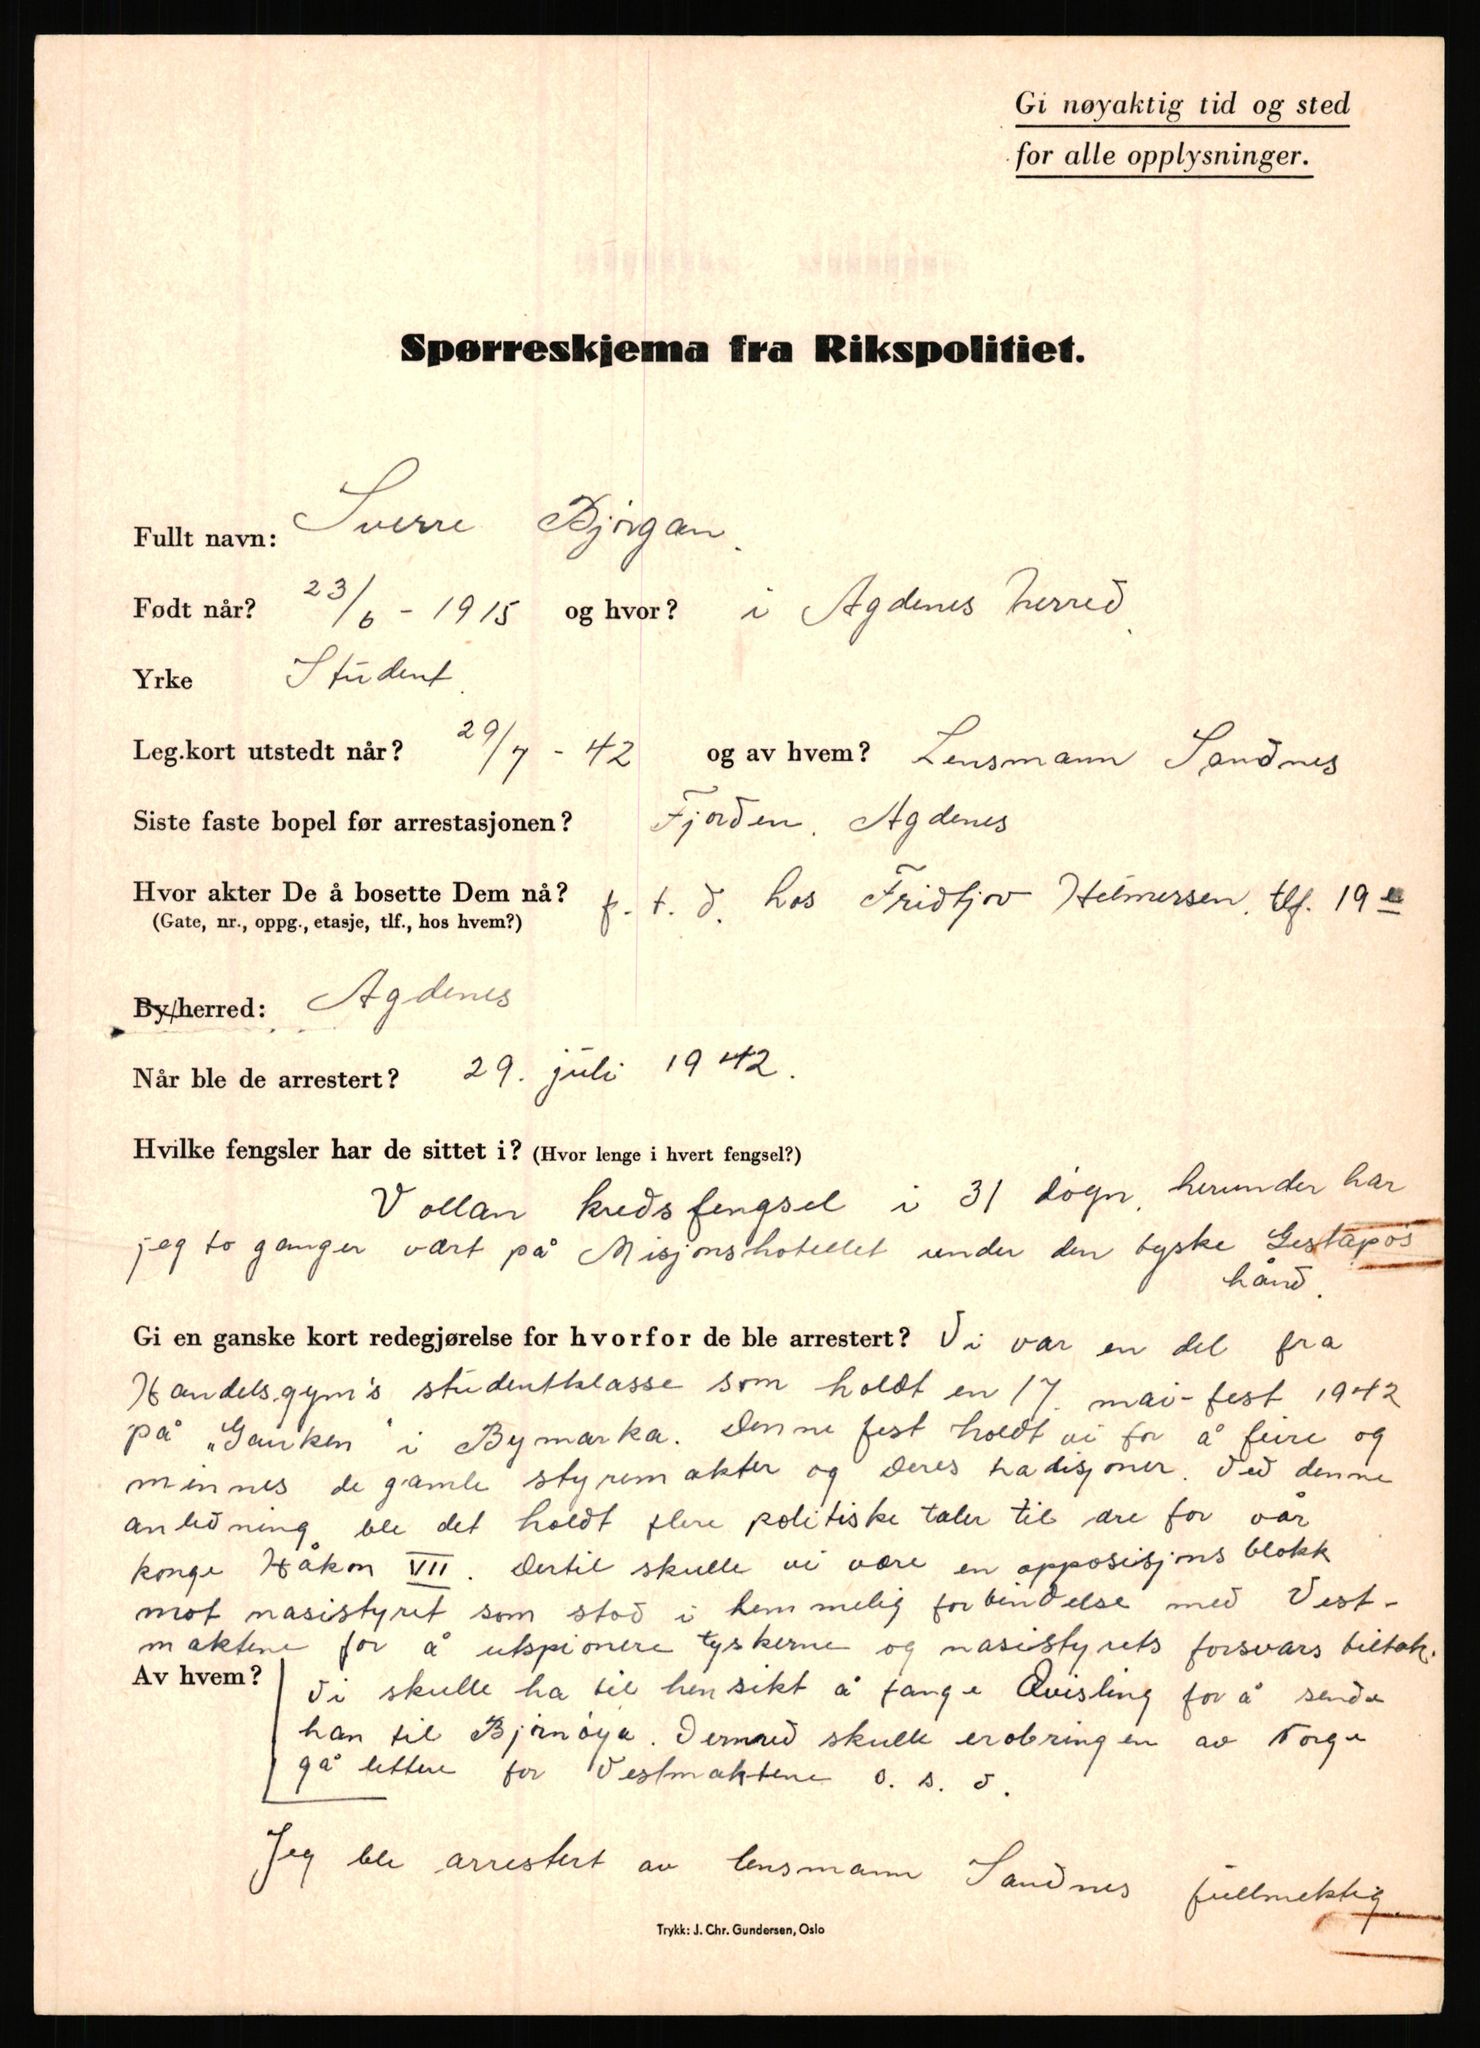 Gi nøyaktig tid og sted
for alle opplysninger.
Spørreskjema fra Rikspolitiet.
Fullt navn: Sverre Bjørgan.
Født når? 23/6 - 1915 og hvor? i Agdenes herred.
Yrke Student.
Leg.kort utstedt når? 29/7 - 42 og av hvem? Lensmann Sandnes
Siste faste bopel før arrestasjonen? Fjorden. Agdenes
Hvor akter De å bosette Dem nå? f. t. d. hos Fridtjov Hilmersen. tlf. 19
(Gate, nr., oppg., etasje, tlf., hos hvem?)
By/herred: Agdenes
Når ble de arrestert? 29. juli 1942.
Hvilke fengsler har de sittet i? (Hvor lenge i hvert fengsel?)
Vollan kredsfengsel i 31 døgn, herunder har
jeg to ganger vært på Misjonshotellet under den tyske Gestapos
hånd.
Gi en ganske kort redegjørelse for hvorfor de ble arrestert? Vi var en del fra
Handelsgym's studentklasse som holdt en 17. mai-fest 1942
på „Gauken" i Bymarka. Denne fest holdt vi for å feire og
minnes de gamle styremakter og deres tradisjoner. Ved denne
anledning ble det holdt flere politiske taler til ære for vår
konge Håkon VII. Dertil skulle vi være en opposisjons blokk
mot nasistyret som stod i hemmelig forbindelse med Vest-
maktene for å utspionere tyskerne og nasistyrets forsvars tiltak.
Av hvem? Vi skulle ha til hensikt å fange Qvisling for å sende
han til Bjørnøya. Dermed skulle erobringen av Norge
gå lettere for Vestmaktene o. s. v.
Jeg ble arrestert av lensmann Sandnes fullmektig.
Trykk: J. Chr. Gundersen, Oslo